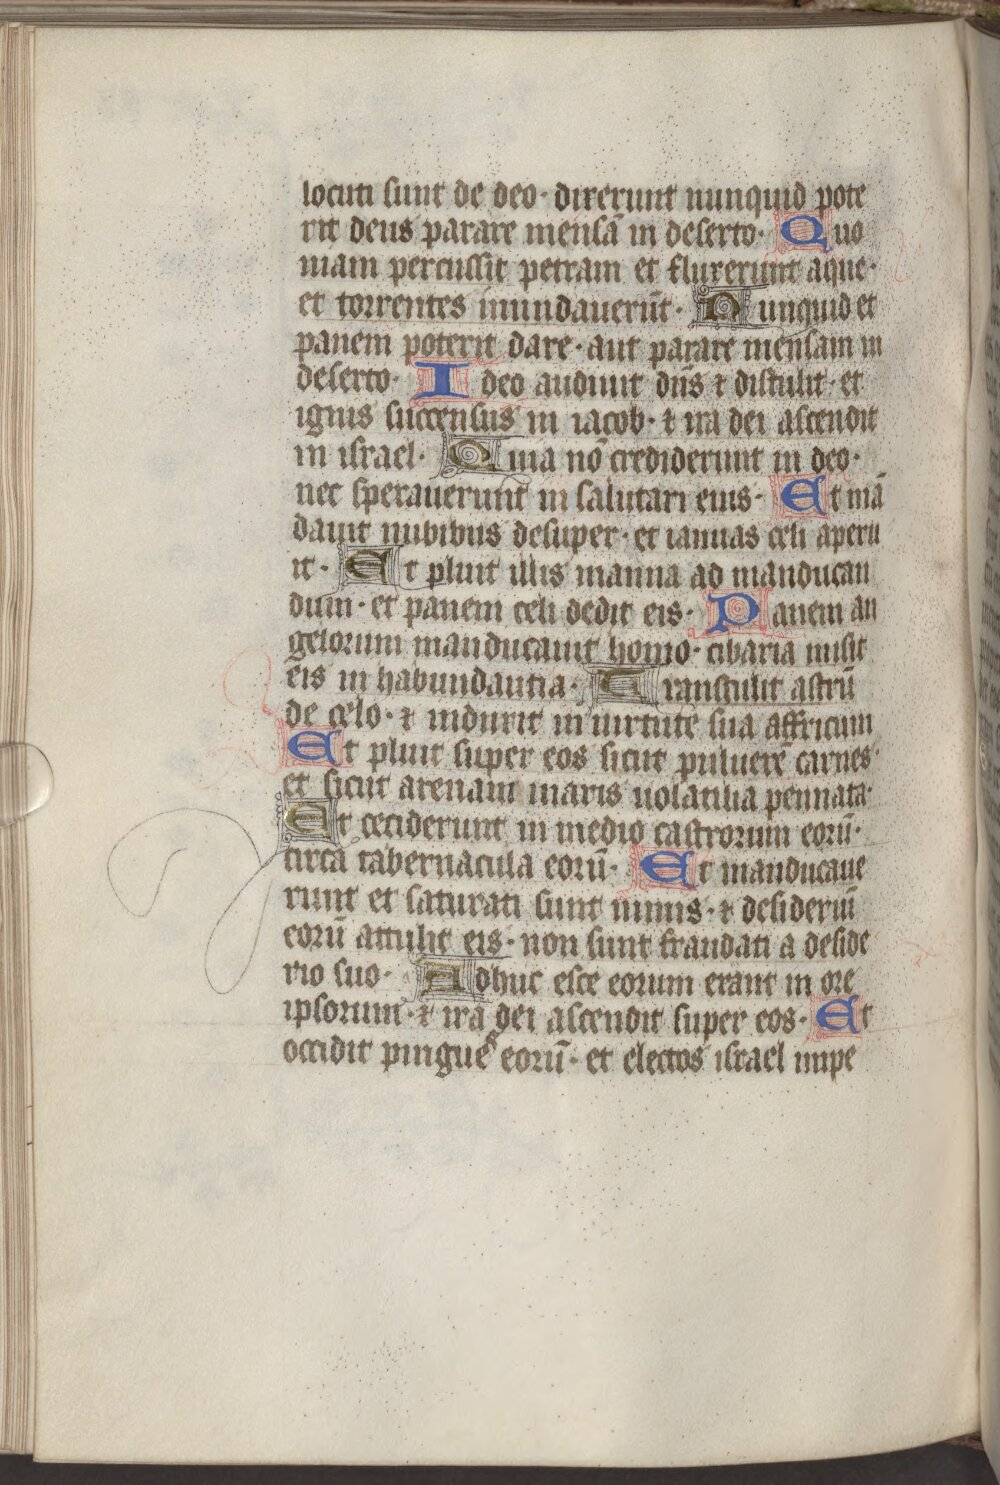 locuti sunt de deo · dixerunt nunquid pote
rit deus parare mensā in deserto · Quo
niam percussit petram et fluxerunt aque ·
et torrentes inundaverūt · Nunquid et
panem poterit dare · aut parare mensam in
deserto · Ideo audivit dn̄s ⁊ distulit · et
ignis succensus in iacob · ⁊ ira dei ascendit
in israel · Quia nō crediderunt in deo ·
nec speraverunt in salutari eius · Et mā
davit nubibus desuper · et ianuas celi aperu
it · Et pluit illis manna ad manducan
dum · et panem celi dedit eis · Panem an
gelorum manducavit homo · cibaria misit
eis in habundantia · Transtulit astrū
de celo · ⁊ induxit in uirtute sua affricum
Et pluit super eos sicut puluerē carnes ·
et sicut arenam maris uolatilia pennata ·
Et ceciderunt in medio castrorum eorū ·
circa tabernacula eorū · Et manducave
runt et saturati sunt nimis · ⁊ desideriū
eorū attulit eis · non sunt fraudati a deside
rio suo · Adhuc esce eorum erant in ore
ipsorum · ⁊ ira dei ascendit super eos · Et
occidit pingues eorū · et electos israel impe